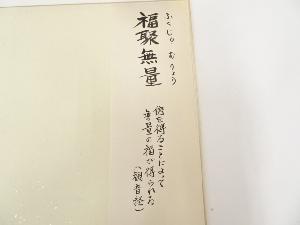 ふくじゅ むりょう
福聚無量
徳を得ることによって
無量の福が得られる
(観音経)